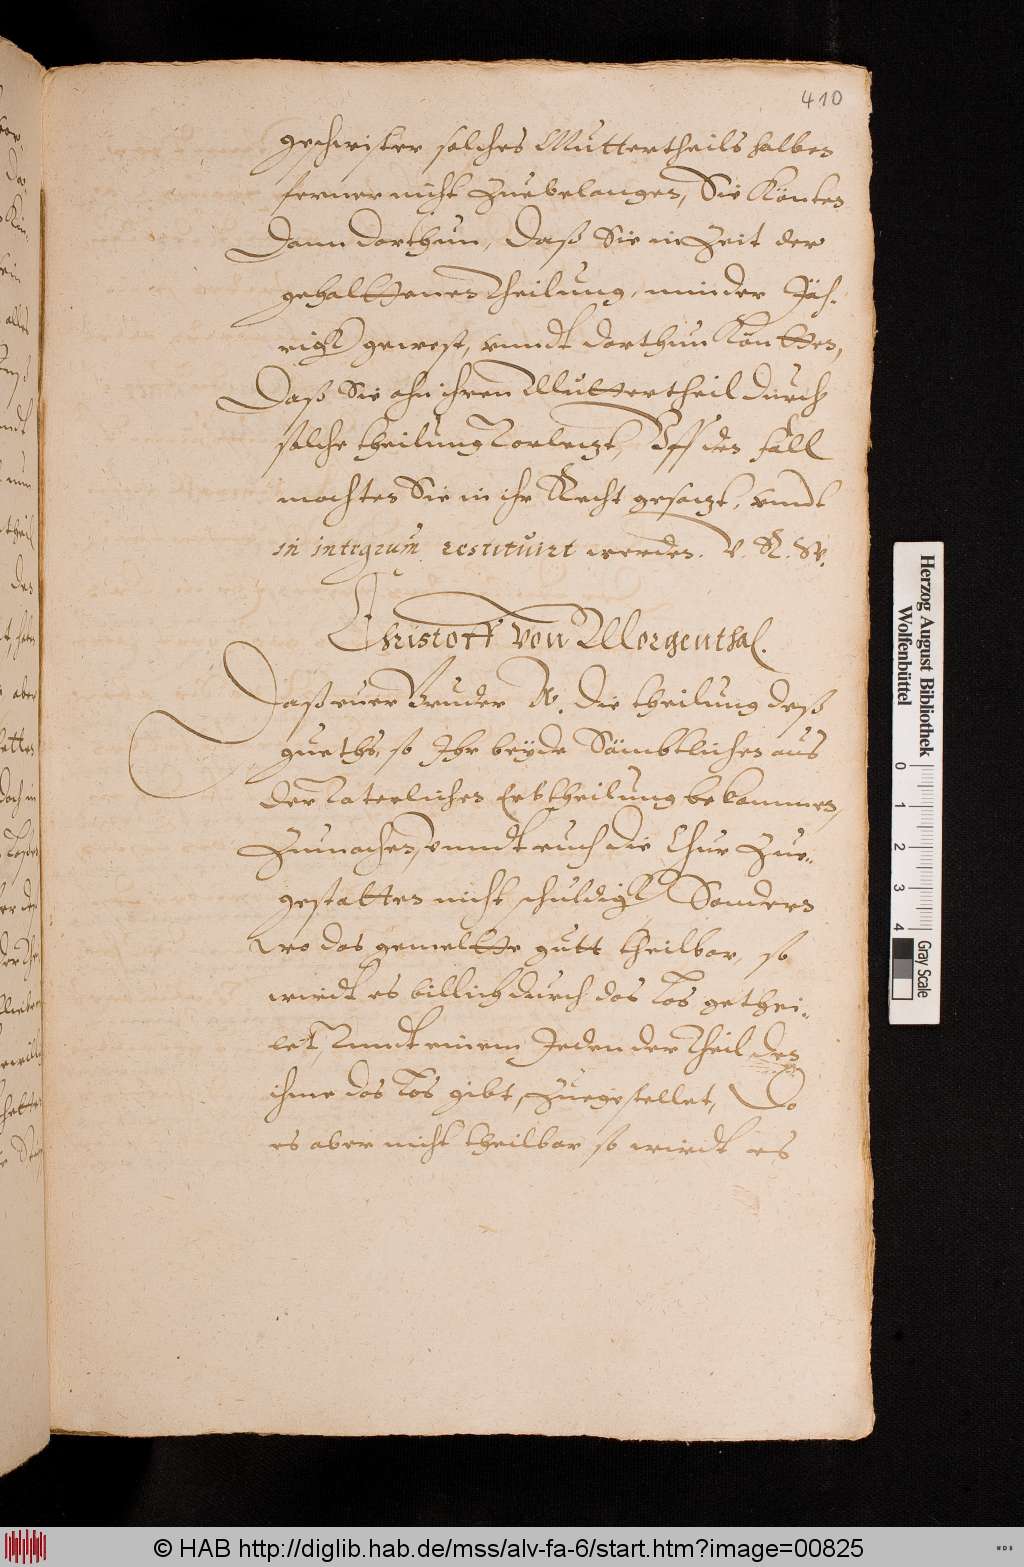 410
geschwister solches Muttertheils halben
ferner nicht Zuebelangen, Sie Könten
Dann darthun, Daß Sie in Zeit der
gehaltenen Theilung, minder Jäh-
rigk gewest, vundt darthun Köntten,
Daß Sie ahn ihren Muttertheil durch
solche theilung Vorletzt, Vff den fall
mochten Sie in ihr Recht gesatzt, vndt
in integrum restituirt werden. V. R. W.
Christoff von Morgenthal.
Daß euer Bruder N. Die theilung deß
gueths, so Ihr beÿde Sämbtlichen aus
der Vaterlichen Erbtheilung bekommen,
Zumachen, vnndt euch die Chur Zue-
gestatten nicht schuldigk, Sondern
wo das gemeltte gutt theilbar, so
wirdt es billich durch das Los gethei-
let, Vnndt einem Jeden der Theil den
ihme das Los gibt, Zuegestellet, Do
es aber nicht theilbar so wirdt es
Herzog August Bibliothek
Wolfenbüttel
0 1 2 3 4
Gray Scale
© HAB http://diglib.hab.de/mss/alv-fa-6/start.htm?image=00825